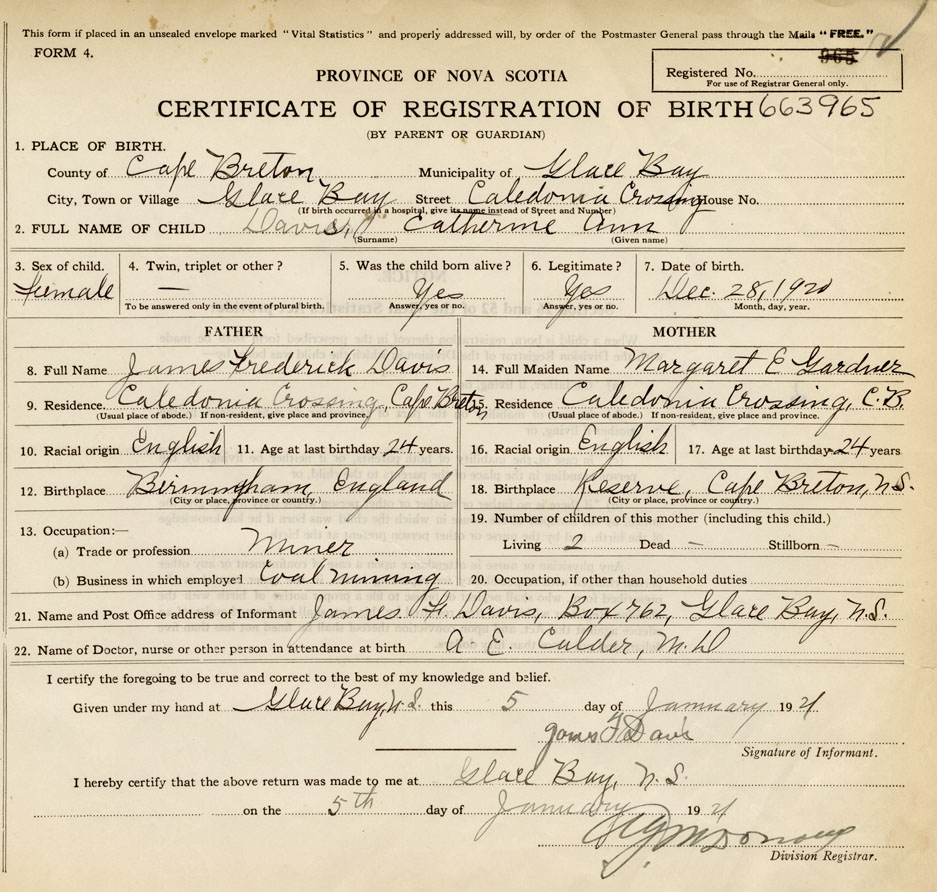 This form if placed in an unsealed envelope marked "Vital Statistics" and properly addressed will, by order of the Postmaster General pass through the Mails "FREE."
FORM 4.
965
PROVINCE OF NOVA SCOTIA
Registered No.
For use of Registrar General only.
CERTIFICATE OF REGISTRATION OF BIRTH 663965
(BY PARENT OR GUARDIAN)
1. PLACE OF BIRTH.
County of Cape Breton Municipality of Glace Bay
City, Town or Village Glace Bay Street Caledonia Crossing House No.
(If birth occurred in a hospital, give its name instead of Street and Number)
2. FULL NAME OF CHILD Davis, Catherine Ann
(Surname) (Given name)
3. Sex of child. 4. Twin, triplet or other? 5. Was the child born alive? 6. Legitimate? 7. Date of birth.
Female — Yes Yes Dec. 28, 1920
To be answered only in the event of plural birth. Answer, yes or no. Answer, yes or no. Month, day, year.
FATHER MOTHER
8. Full Name James Frederick Davis 14. Full Maiden Name Margaret E Gardner
9. Residence. Caledonia Crossing, Cape Breton 15. Residence Caledonia Crossing, C.B.
(Usual place of abode. If non-resident, give place and province. (Usual place of abode.) If non-resident, give place and province.
10. Racial origin English 11. Age at last birthday 24 years. 16. Racial origin English 17. Age at last birthday 24 years
12. Birthplace Birmingham, England 18. Birthplace Reserve, Cape Breton, N.S.
(City or place, province or country.) (City or place, province or country.)
13. Occupation:— 19. Number of children of this mother (including this child.)
(a) Trade or profession Miner Living 2 Dead — Stillborn —
(b) Business in which employed Coal mining 20. Occupation, if other than household duties
21. Name and Post Office address of Informant James F. Davis, Box 762, Glace Bay, N.S.
22. Name of Doctor, nurse or other person in attendance at birth A. E. Calder, M.D
I certify the foregoing to be true and correct to the best of my knowledge and belief.
Given under my hand at Glace Bay, N.S. this 5 day of January 1921.
James F Davis
Signature of Informant.
I hereby certify that the above return was made to me at Glace Bay, N.S.
on the 5th day of January 1921
Division Registrar.